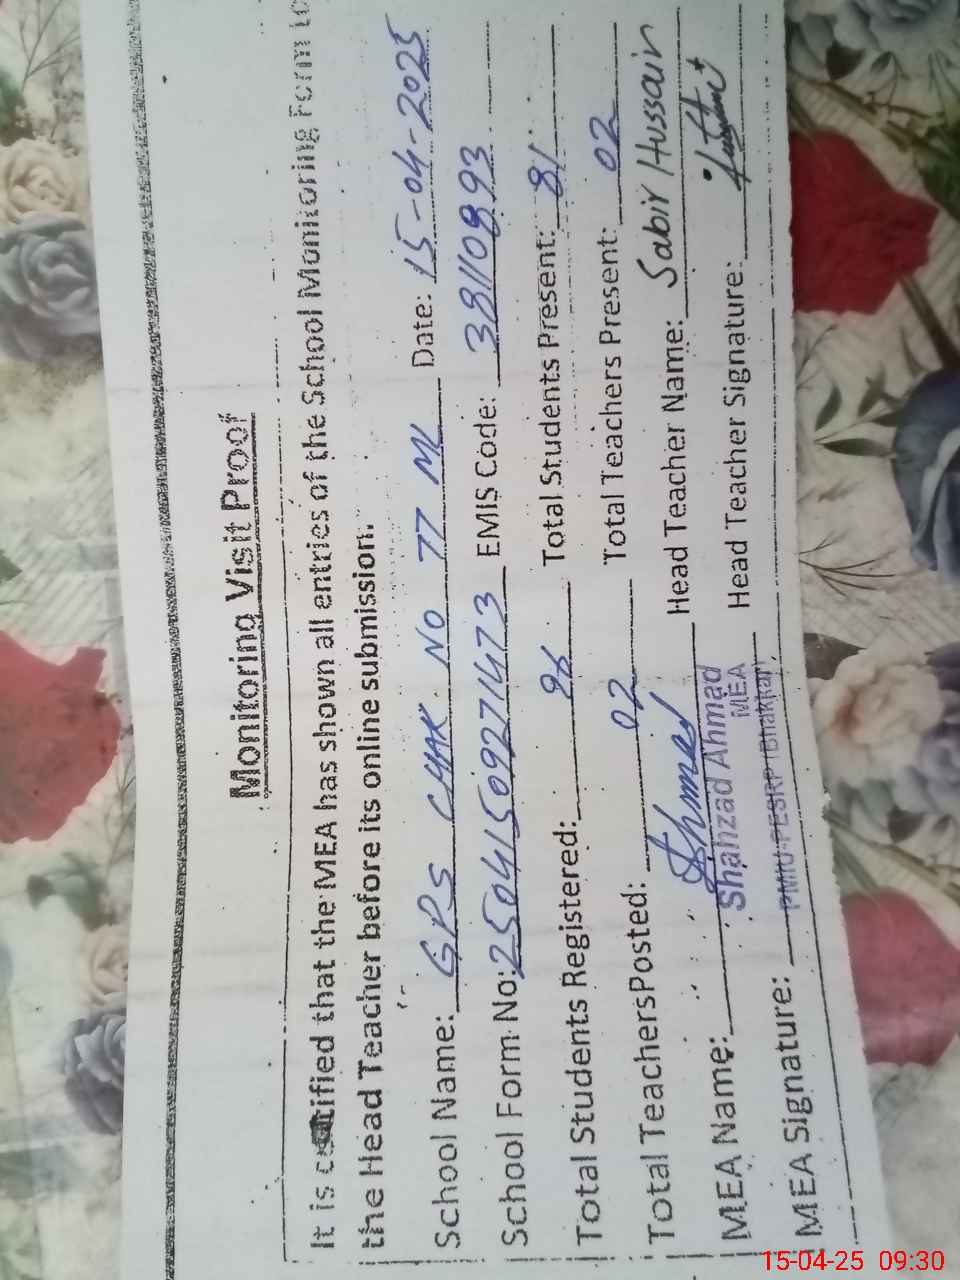 Monitoring Visit Proof
It is certified that the MEA has shown all entries of the School Monitoring Form to
the Head Teacher before its online submission.
School Name: GPS CHAK NO 77 ML Date: 15-04-2025
School Form No: 25041509271473 EMIS Code: 38110893
Total Students Registered: 96 Total Students Present: 81
Total TeachersPosted: 02 Total Teachers Present: 02
MEA Name: Shahzad Ahmad Head Teacher Name: Sabir Hussain
MEA
MEA Signature: PMIU-PESRP (Bhakkar) Head Teacher Signature:
15-04-25 09:30